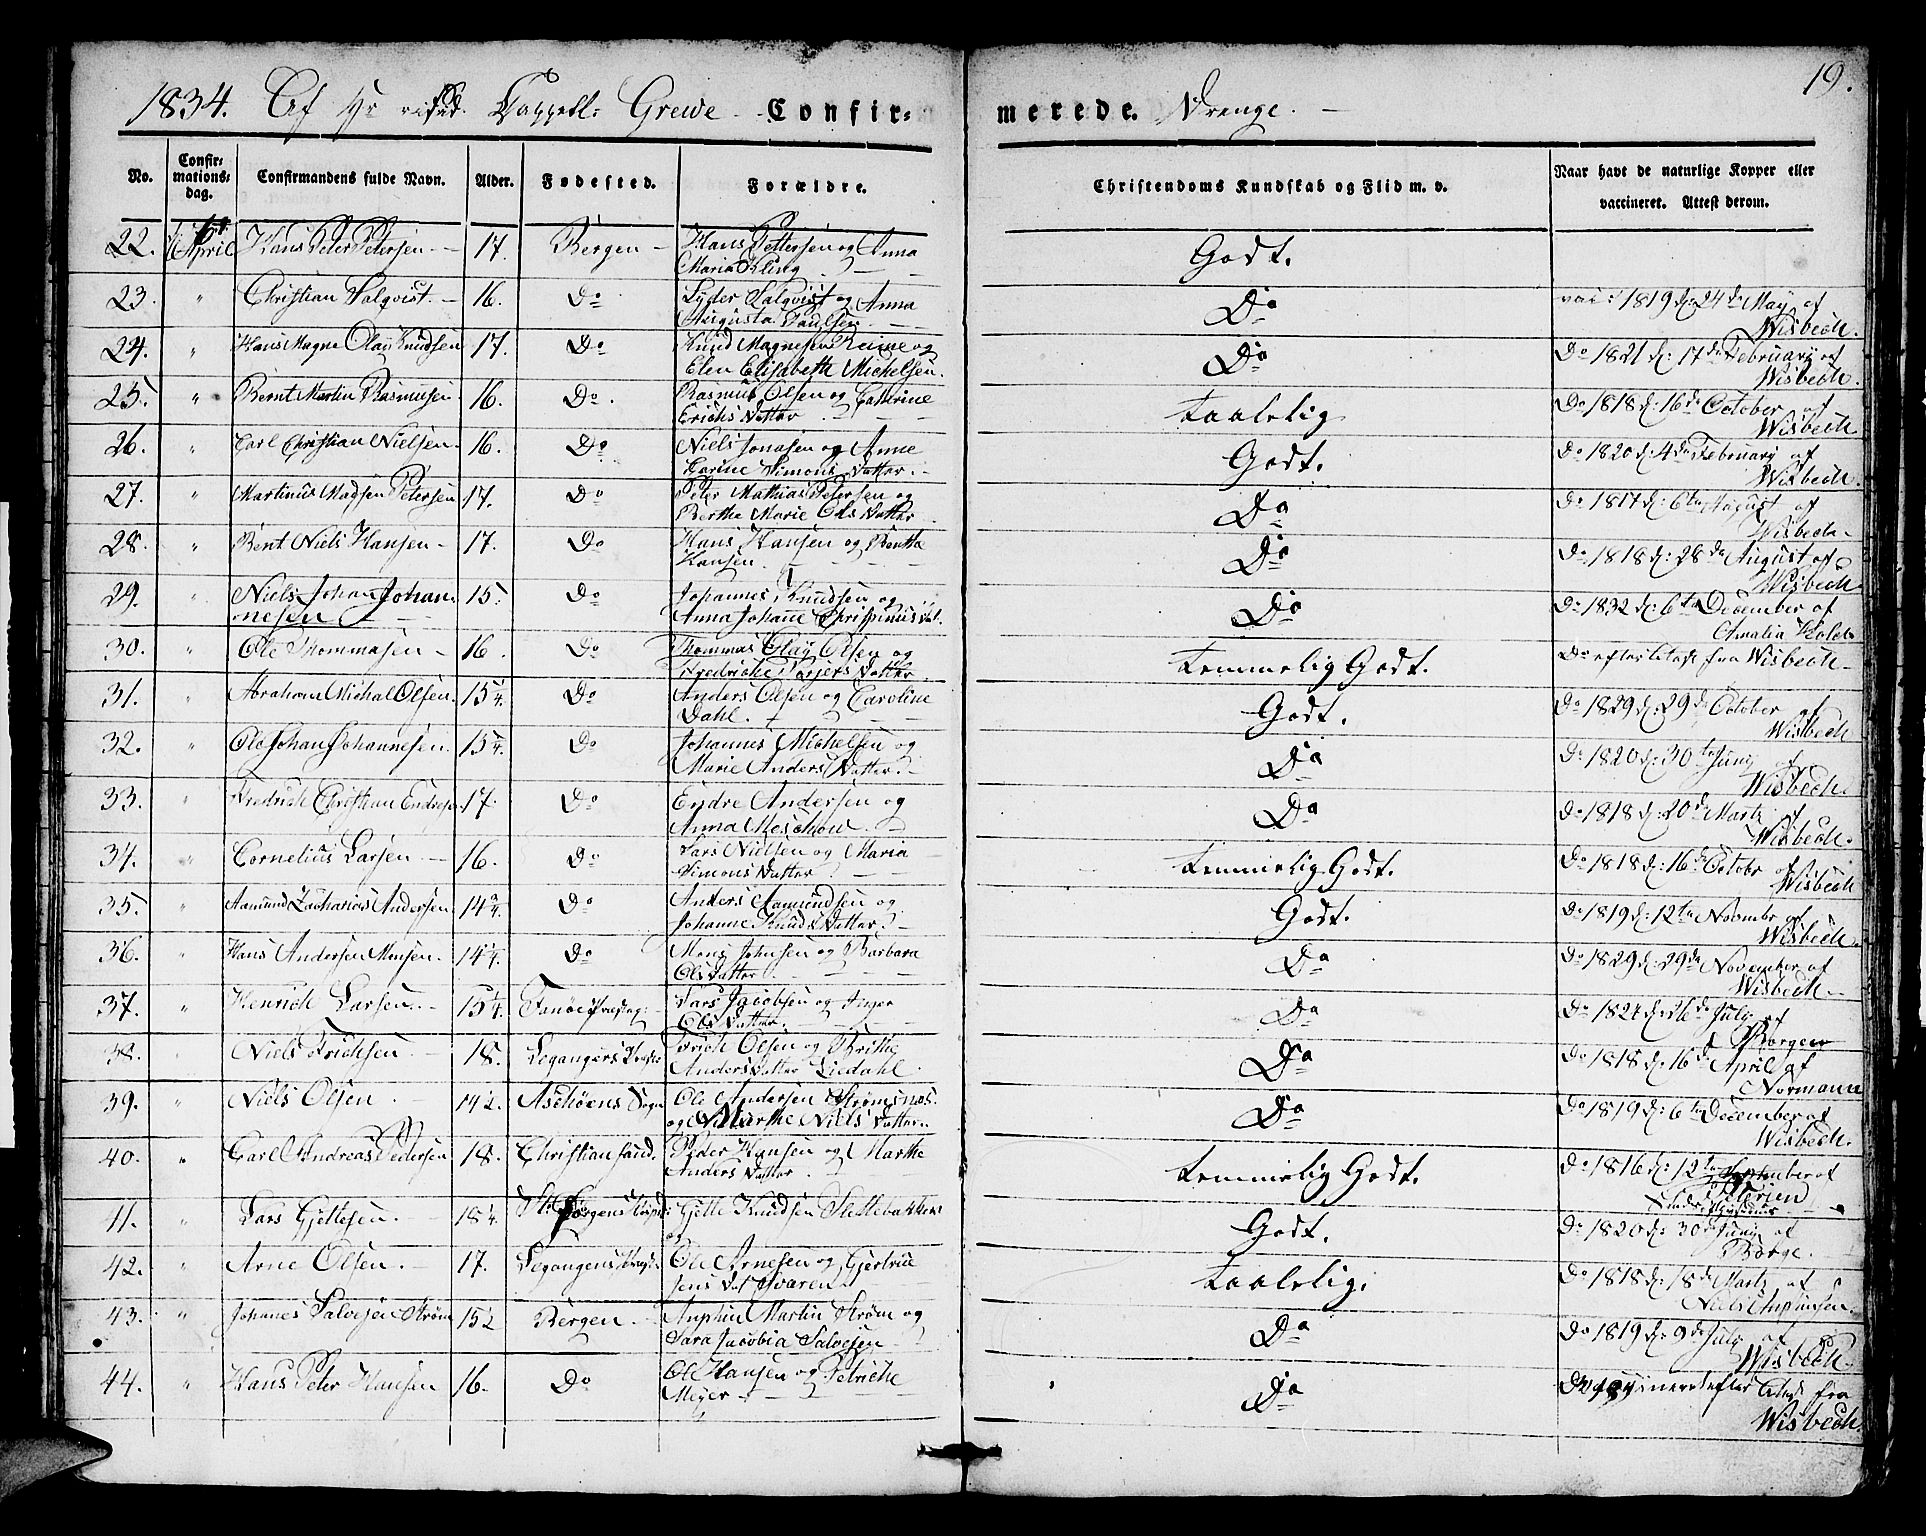 19.
1834. Af Hr resid. Cappell: Grewe Confir= merede. Drenge. —
No. Confir=mations=dag. Confirmandens fulde Navn. Alder. Fødested. Forældre. Christendoms Kundskab og Flid m. v. Naar havt de naturlige Kopper eller vaccineret. Attest derom.
22. April Hans Peter Petersen 17. Bergen Hans Pettersen og Anna Maria Kling Godt.
23. " Christian Salqvist 16. Do Lyder Salqvist og Anna Augusta Paulsen Do vac: 1819 d: 24de May af Wisbech.
24. " Hans Magne Olay Knudsen 17. Do Knud Magnesen Reime og Elen Elisabeth Michelsen. Do Do 1821 d: 17de February af Wisbech.
25. " Bernt Martin Rasmussen 16. Do Rasmus Olsen og Cathrine Erichs Datter Taalelig Do 1818 d: 16de October af Wisbech.
26. " Carl Christian Nielsen 16. Do Niels Jonasen og Anne Carine Simons Datter Godt. Do 1820 d: 4de February af Wisbech.
27. " Martinus Madsen Petersen 17. Do Peter Mathias Petersen og Berthe Marie Ols Datter Do Do 1817 d: 6te August af Wisbech
28. " Bent Niels Hansen 17. Do Hans Hansen og Benthe Hansen. Do Do 1818 d: 28de August af Wisbech
29. " Niels Johan Johannesen 15. Do Johannes Knudsen og Anna Johanne Do Do 1832 d: 6te December af Amalia Kold
30. " Ole Thommasen 16. Do Thommas Olay Olsen og Fredriche Datter Temmelig Godt. Do efter Attest fra Wisbech
31. " Abraham Michal Olsen 15 1/4. Do Anders Olsen og Caroline Dahl. Godt. Do 1829 d: 29de October af Wisbech
32. " Ole Johan Johannesen. 15 Do Johannes Michelsen og Marie Anders Datter. Do Do 1820 d: 30te Juny af Wisbech.
33. " Fredrich Christian Endresen 17. Do Endre Andersen og Anna Meschow. Do Do 1818 d: 20de Marts af Wisbech.
34. " Cornelius Larsen 16. Do Lars Nielsen og Maria Simons Datter Temmelig Godt. Do 1818 d: 16de Octobr af Wisbech
35. " Aamund Zacharias Andersen. 14 3/4. Do Anders Aamundsen og Johanne Knuds Datter Godt. Do 1819 d: 12te Novembr af Wisbech.
36. " Hans Andersen Monsen. 14 1/4. Do Mons Johnsen og Barbara Ols Datter Do Do 1829 d: 29de November af Wisbech.
37. " Henrich Larsen 15 1/4. Fanøe Præsteg: Lars Jacobsen og Ols Datter. Do Do 1824 d: 26de July af Borgen
38. " Niels Erichsen 18. Legangers Præst Erich Olsen og Brithe Anders Datter Liedahl. Do Do 1818 d: 16de April af Normann
39. " Niels Olsen 14 1/2. Aschøens Sogn Ole Andersen Strømsnes. og Marthe Niels Datter. Do Do 1819 d: 6te December af Wisbech.
40. " Carl Andreas Pedersen 18. Christiansand. Peder Hansen og Marthe Anders Datter Temmelig Godt. Do 1816 d: 12te September af
41. " Lars Gjettesen. 18 1/4. St: Jørgens Gjette Knudsen Slettebakken og Godt. Do 1820 d: 30te Juny af Borge.
42. " Arne Olsen. 17. Legangers Ole Arnesen og Gjertrue Jens Dat Qvaren Taalelig. Do 1818 d: 18de Marts af Niels
43. " Johanes Salvesen Strøm 15 1/2 Bergen. Anphin Martin Strøm og Sara Jacobia Salvesen Do Do 1819 d: 9de July af Wisbech
44. " Hans Peter Hansen 16. Do Ole Hansen og Petriche Meyer Do vaccineret efter Attest fra Wisbech